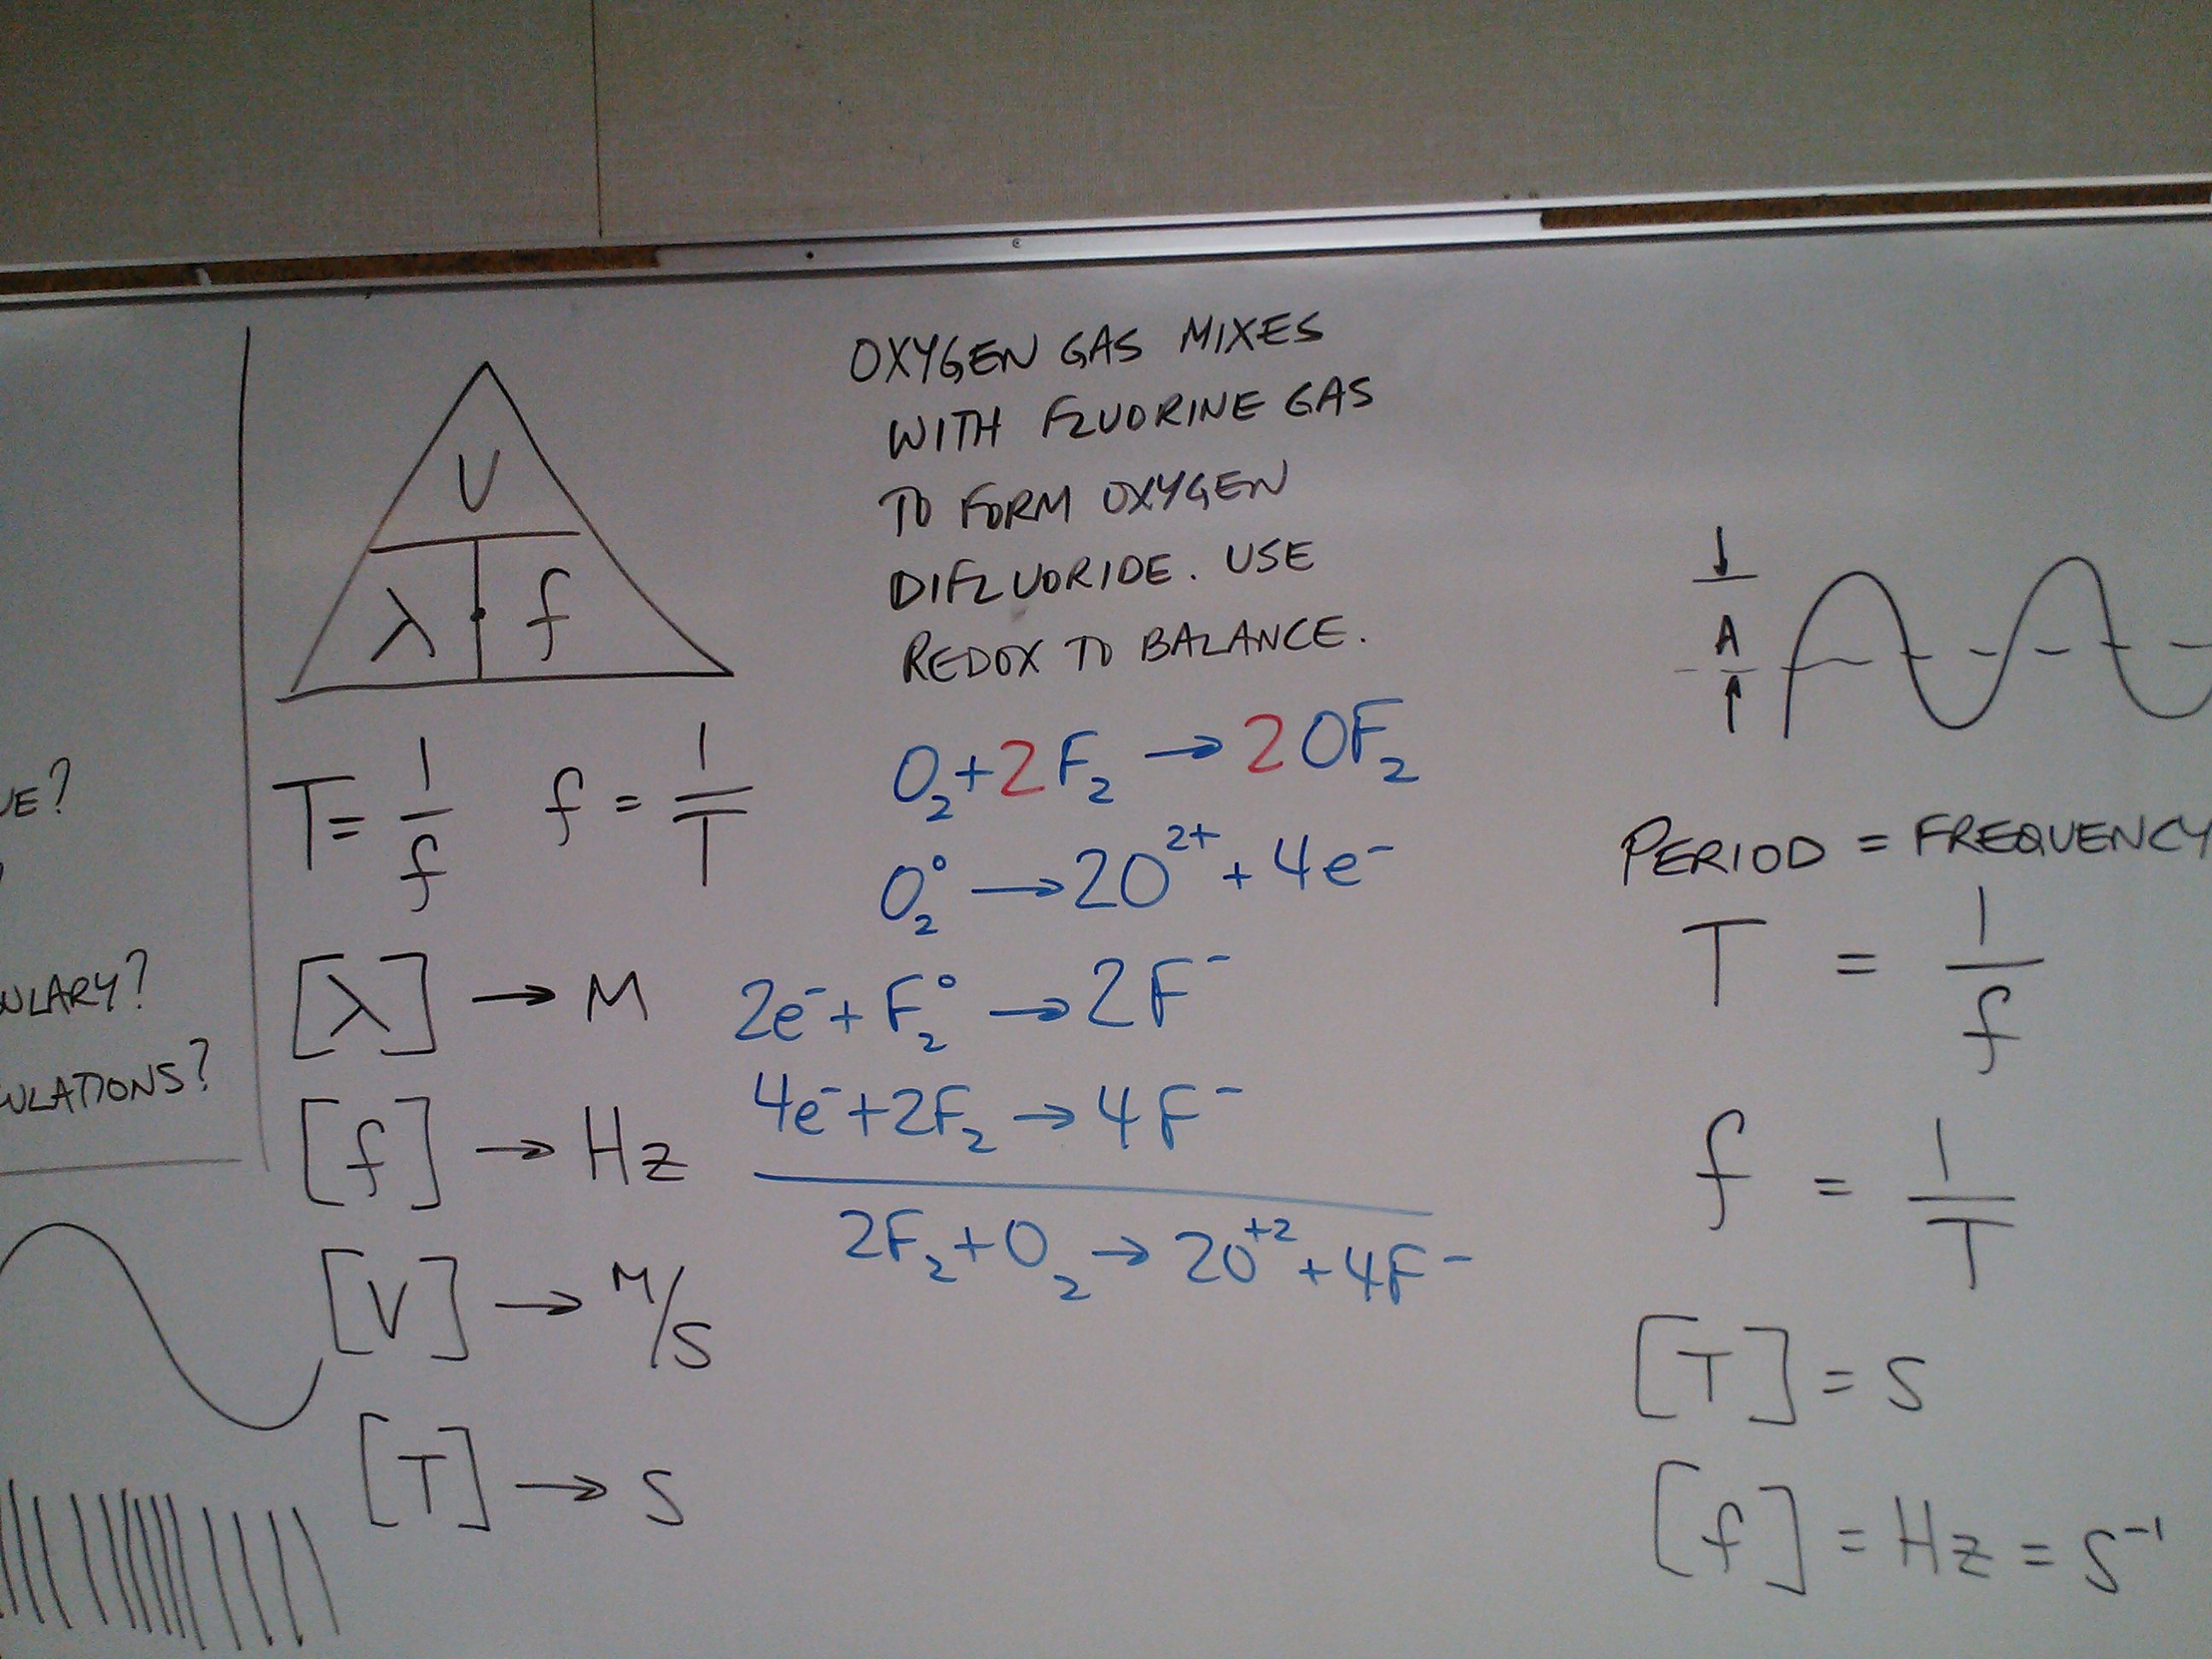 V
λ f
T = 1/f f = 1/T
[λ] → M
[f] → Hz
[V] → M/S
[T] → S
OXYGEN GAS MIXES
WITH FLUORINE GAS
TO FORM OXYGEN
DIFLUORIDE. USE
REDOX TO BALANCE.
O₂ + 2F₂ → 2OF₂
O₂° → 2O²⁺ + 4e⁻
2e⁻ + F₂° → 2F⁻
4e⁻ + 2F₂ → 4F⁻
2F₂ + O₂ → 2O⁺² + 4F⁻
A
PERIOD = FREQUENCY
T = 1/f
f = 1/T
[T] = S
[f] = Hz = S⁻¹